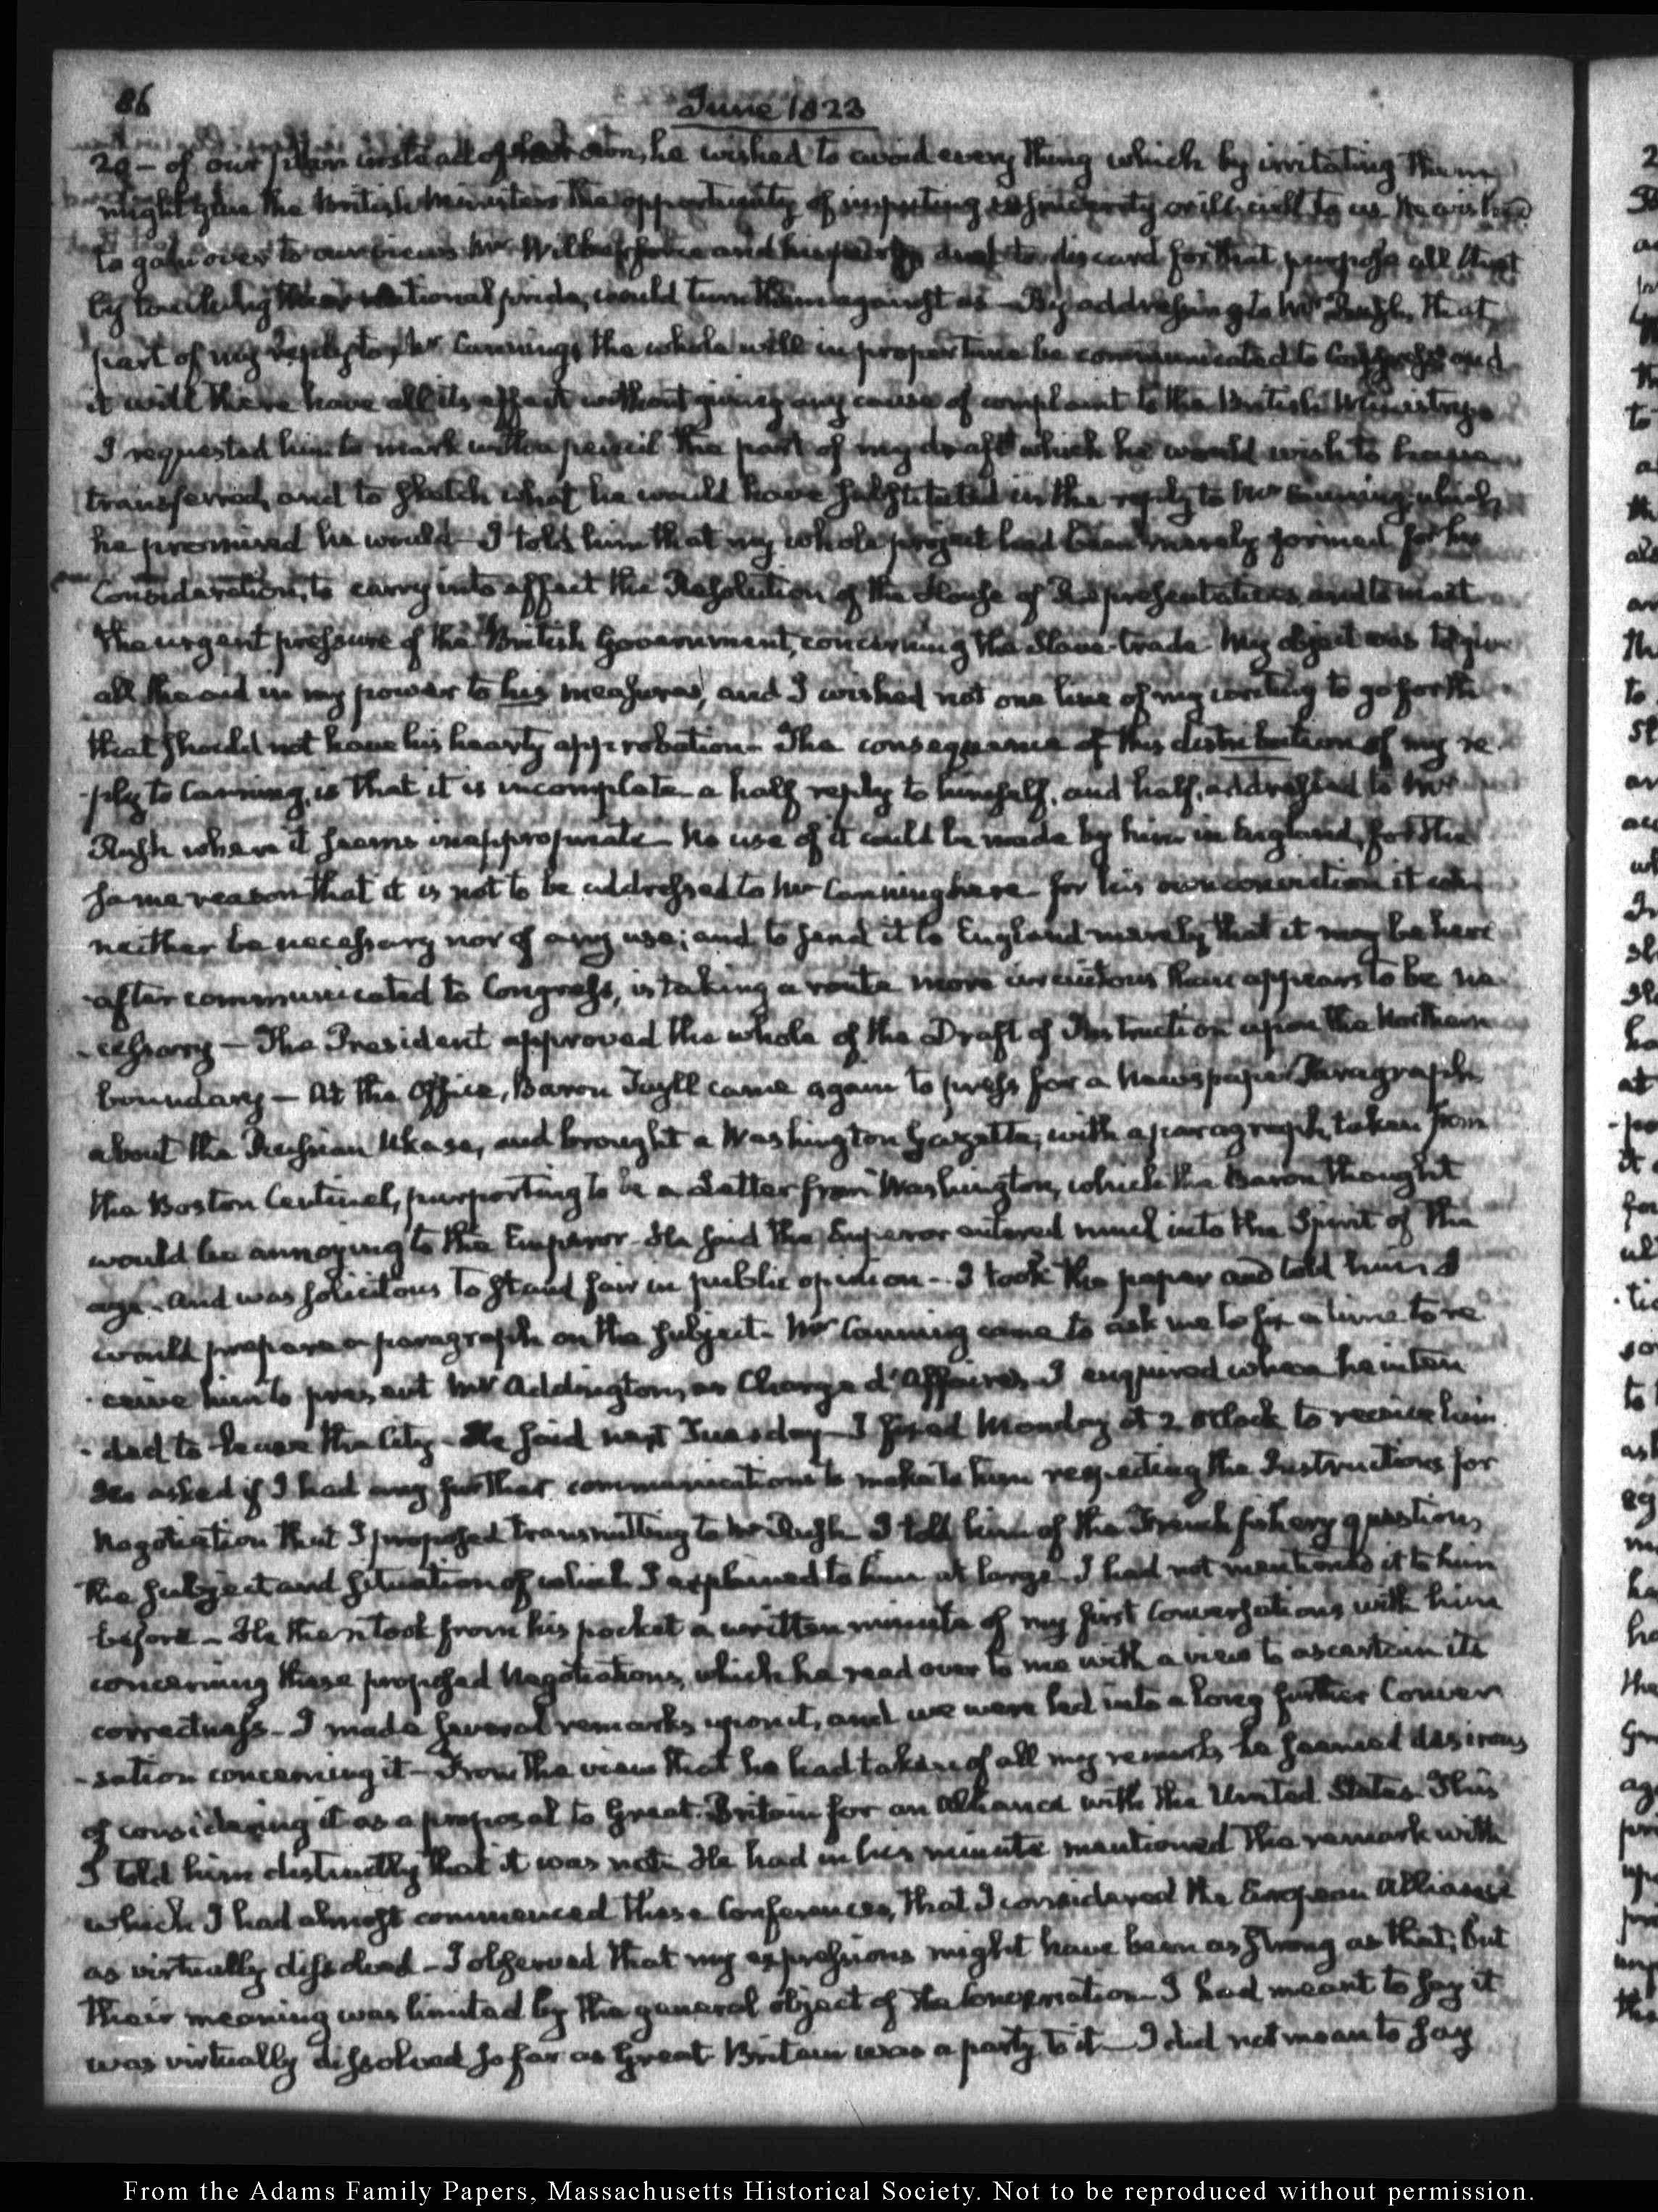 86
June 1823
20 - of our plan instead of their own, he wished to avoid every thing which by irritating them
might give the British Ministers the opportunity of imputing insincerity or ill-will to us. He wished
to gain over to our views Mr Wilberforce and his party and to discard for that purpose all that
by touching their national pride, would turn them against us - By addressing to Mr Rush, that
part of my reply to Mr Canning, the whole will in proper time be communicated to Congress and
it will there have all its effect without giving any cause of complaint to the British Ministry.
I requested him to mark with a pencil the part of my draft which he would wish to have
transferred, and to sketch what he would have substituted in the reply to Mr Canning, which
he promised he would - I told him that my whole project had been merely formed for his
Consideration, to carry into effect the Resolution of the House of Representatives, and to meet
the urgent pressure of the British Government, concerning the Slave-trade. My object was to give
all the aid in my power to his measures, and I wished not one line of my writing to go forth
that should not have his hearty approbation - The consequence of this distribution of my re
-ply to Canning, is that it is incomplete a half reply to himself, and half, addressed to Mr
Rush where it seems inappropriate - No use of it could be made by him in England, for the
same reason that it is not to be addressed to Mr Canning here - for his own conviction it can
neither be necessary nor of any use; and to send it to England merely that it may be here
-after communicated to Congress, is taking a route more circuitous than appears to be ne
-cessary - The President approved the whole of the Draft of Instruction upon the Northern
boundary - At the Office, Baron Tuyll came again to press for a Newspaper Paragraph
about the Russian Ukase, and brought a Washington Gazette, with a paragraph, taken from
the Boston Centinel, purporting to be a Letter from Washington, which the Baron thought
would be annoying to the Emperor - He said the Emperor entered much into the Spirit of the
age - and was solicitous to stand fair in public opinion - I took the paper and told him I
would prepare a paragraph on the subject - Mr Canning came to ask me to fix a time to re
-ceive him to present Mr Addington, as Chargé d'Affaires - I enquired when he inten
-ded to leave the City - He said next Tuesday - I fixed Monday at 2 o'Clock to receive him
He asked if I had any further communications to make to him respecting the Instructions for
Negotiation that I proposed transmitting to Mr Rush I told him of the French fishery question,
the subject and situation of which I explained to him at large - I had not mentioned it to him
before - He then took from his pocket a written minute of my first Conversations with him
concerning these proposed Negotiations, which he read over to me with a view to ascertain its
correctness - I made several remarks upon it, and we were led into a long further Conver
-sation concerning it - From the view that he had taken of all my remarks, he seemed desirous
of considering it as a proposal to Great-Britain for an Alliance with the United States. This
I told him distinctly that it was not. He had in his minute mentioned the remark with
which I had almost commenced these Conferences, that I considered the European Alliance
as virtually dissolved - I observed that my expressions might have been as strong as that; but
their meaning was limited by the general object of the Conversation - I had meant to say it
was virtually dissolved so far as Great-Britain was a party to it - I did not mean to say
From the Adams Family Papers, Massachusetts Historical Society. Not to be reproduced without permission.